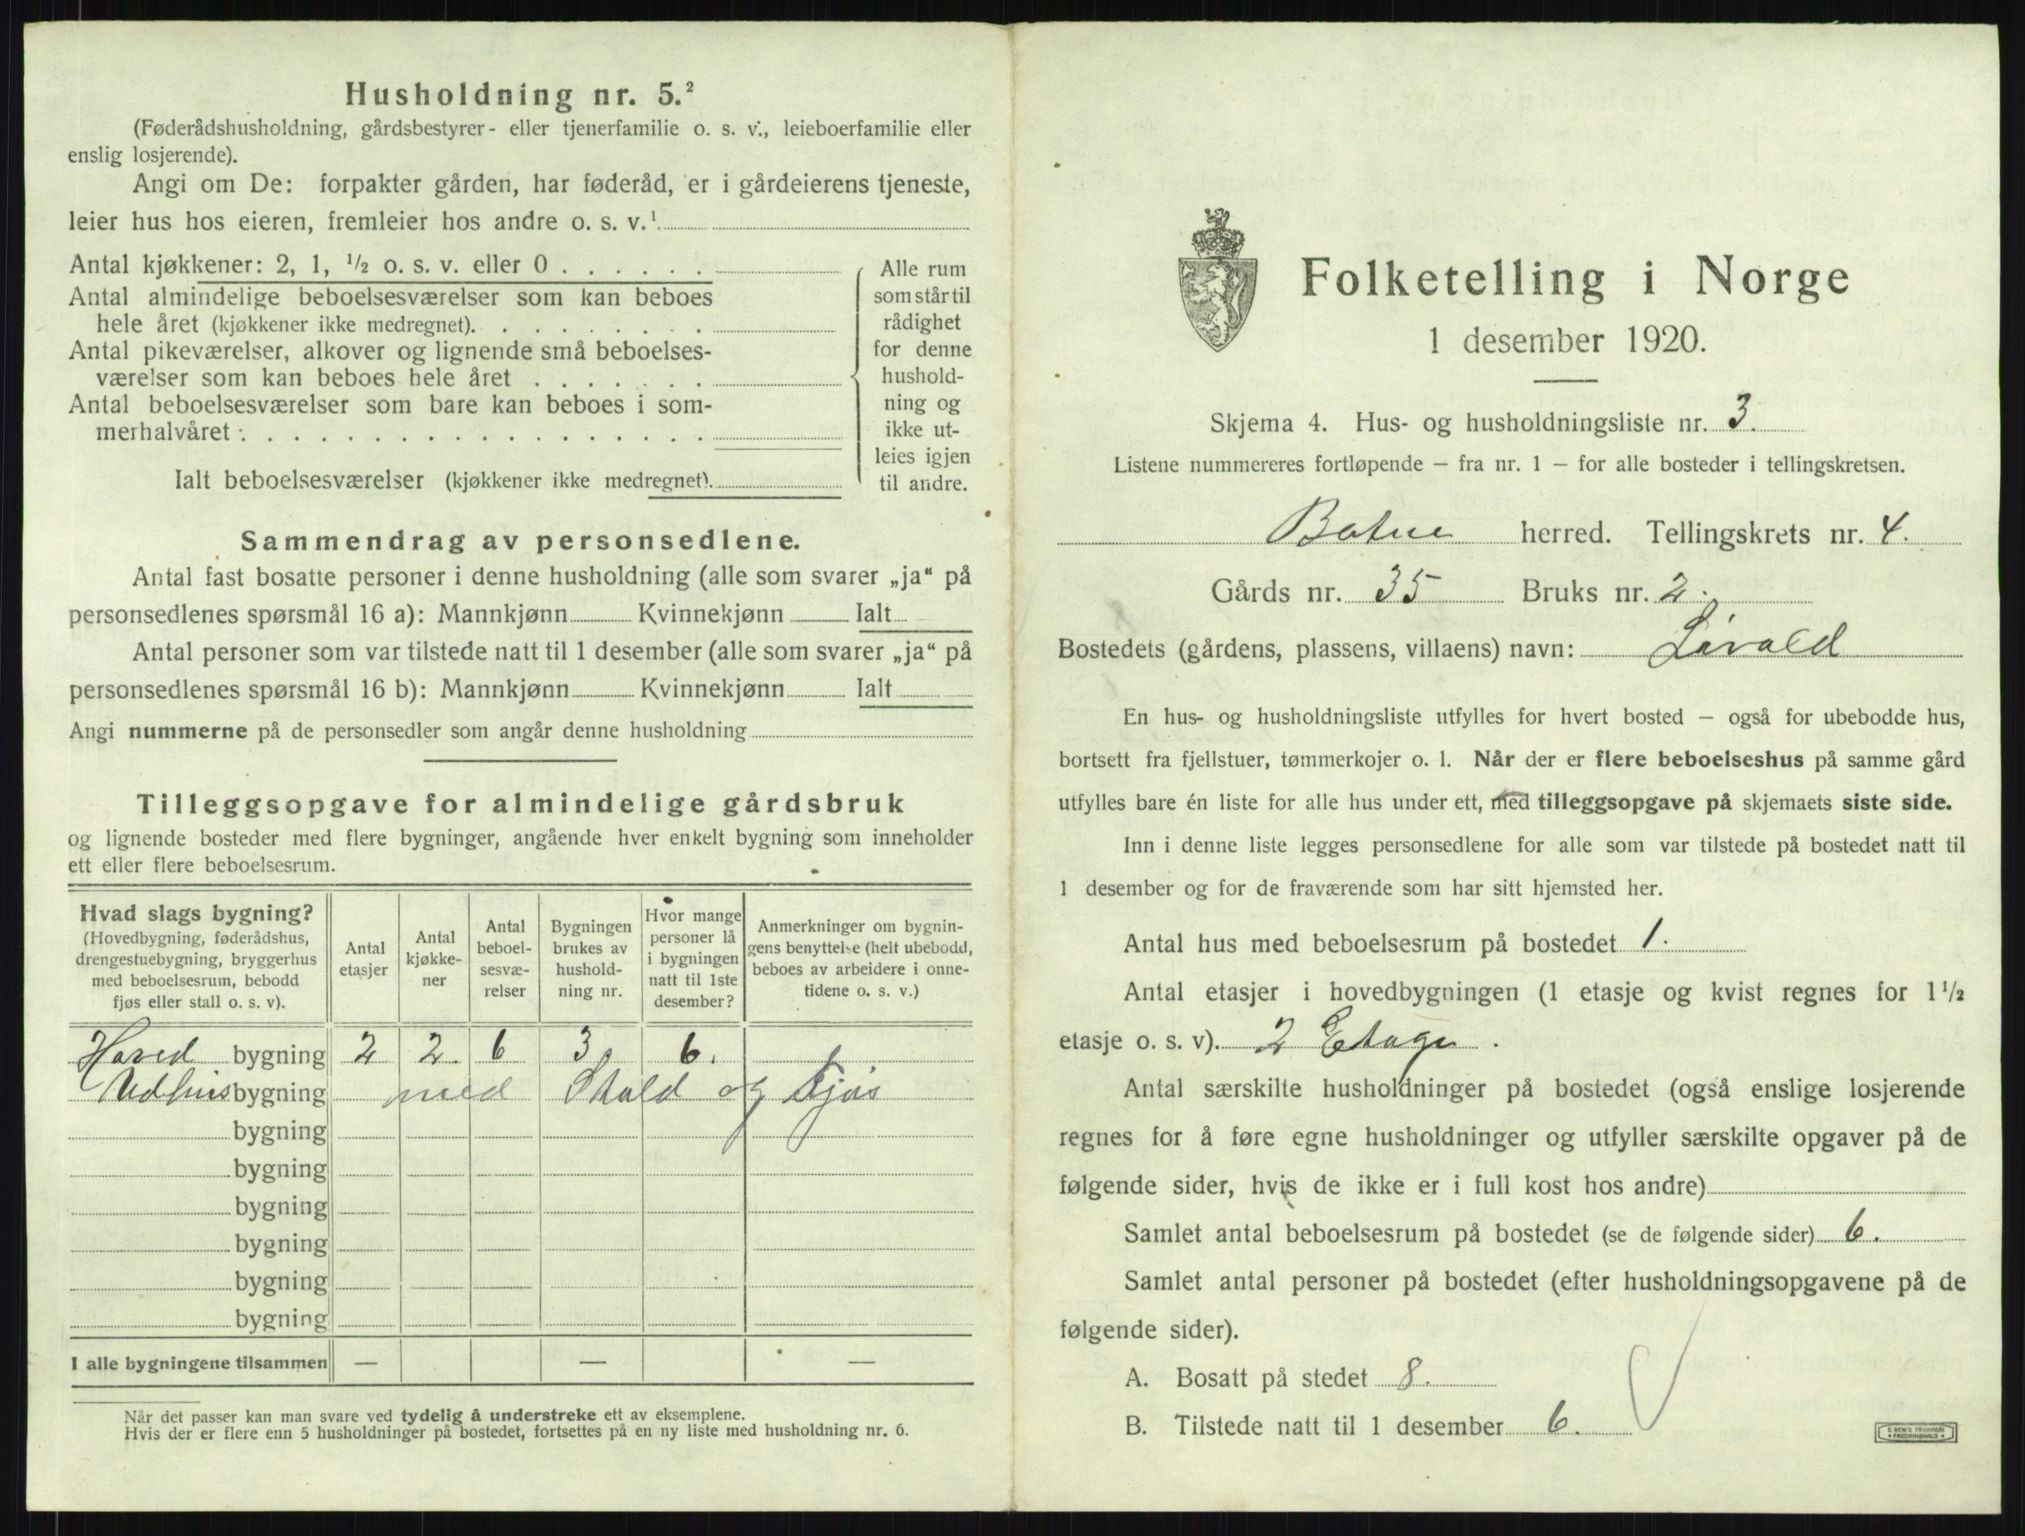 Husholdning nr. 5.²
(Føderådshusholdning, gårdsbestyrer- eller tjenerfamilie o. s. v., leieboerfamilie eller
enslig losjerende).
Angi om De: forpakter gården, har føderåd, er i gårdeierens tjeneste,
leier hus hos eieren, fremleier hos andre o. s. v.¹
Antal kjøkkener: 2, 1, ½ o. s. v. eller 0 . . . . . .
Antal almindelige beboelsesværelser som kan beboes
hele året (kjøkkener ikke medregnet). . . . . . . . .
Antal pikeværelser, alkover og lignende små beboelses-
værelser som kan beboes hele året . . . . . . .
Antal beboelsesværelser som bare kan beboes i som-
merhalvåret . . . . . . . . . . . . . . . . .
Ialt beboelsesværelser (kjøkkener ikke medregnet).
Alle rum
som står til
rådighet
for denne
hushold-
ning og
ikke ut-
leies igjen
til andre.
Sammendrag av personsedlene.
Antal fast bosatte personer i denne husholdning (alle som svarer „ja“ på
personsedlenes spørsmål 16 a): Mannkjønn Kvinnekjønn Ialt
Antal personer som var tilstede natt til 1 desember (alle som svarer „ja“ på
personsedlenes spørsmål 16 b): Mannkjønn Kvinnekjønn Ialt
Angi nummerne på de personsedler som angår denne husholdning
Tilleggsopgave for almindelige gårdsbruk
og lignende bosteder med flere bygninger, angående hver enkelt bygning som inneholder
ett eller flere beboelsesrum.
Hvad slags bygning?
(Hovedbygning, føderådshus,
drengestuebygning, bryggerhus
med beboelsesrum, bebodd
fjøs eller stall o. s. v).
Antal
etasjer
Antal
kjøkke-
ner
Antal
beboel-
sesvæ-
relser
Bygningen
brukes av
hushold-
ning nr.
Hvor mange
personer lå
i bygningen
natt til 1ste
desember?
Anmerkninger om bygnin-
gens benyttelse (helt ubebodd,
beboes av arbeidere i onne-
tidene o. s. v.)
Hoved bygning 2 2 6 3 6.
Udhus bygning med Stald og Fjøs
bygning
bygning
bygning
bygning
bygning
bygning
I alle bygningene tilsammen — — —
Når det passer kan man svare ved tydelig å understreke ett av eksemplene.
Hvis der er flere enn 5 husholdninger på bostedet, fortsettes på en ny liste med husholdning nr. 6.
Folketelling i Norge
1 desember 1920.
Skjema 4. Hus- og husholdningsliste nr. 3.
Listene nummereres fortløpende – fra nr. 1 – for alle bosteder i tellingskretsen.
Botne herred. Tellingskrets nr. 4.
Gårds nr. 35 Bruks nr. 2.
Bostedets (gårdens, plassens, villaens) navn: Løvald
En hus- og husholdningsliste utfylles for hvert bosted – også for ubebodde hus,
bortsett fra fjellstuer, tømmerkojer o. l. Når der er flere beboelseshus på samme gård
utfylles bare én liste for alle hus under ett, med tilleggsopgave på skjemaets siste side.
Inn i denne liste legges personsedlene for alle som var tilstede på bostedet natt til
1 desember og for de fraværende som har sitt hjemsted her.
Antal hus med beboelsesrum på bostedet 1.
Antal etasjer i hovedbygningen (1 etasje og kvist regnes for 1½
etasje o. s. v). 2 Etage.
Antal særskilte husholdninger på bostedet (også enslige losjerende
regnes for å føre egne husholdninger og utfyller særskilte opgaver på de
følgende sider, hvis de ikke er i full kost hos andre)
Samlet antal beboelsesrum på bostedet (se de følgende sider) 6.
Samlet antal personer på bostedet (efter husholdningsopgavene på de
følgende sider).
A. Bosatt på stedet 8.
B. Tilstede natt til 1 desember 6.